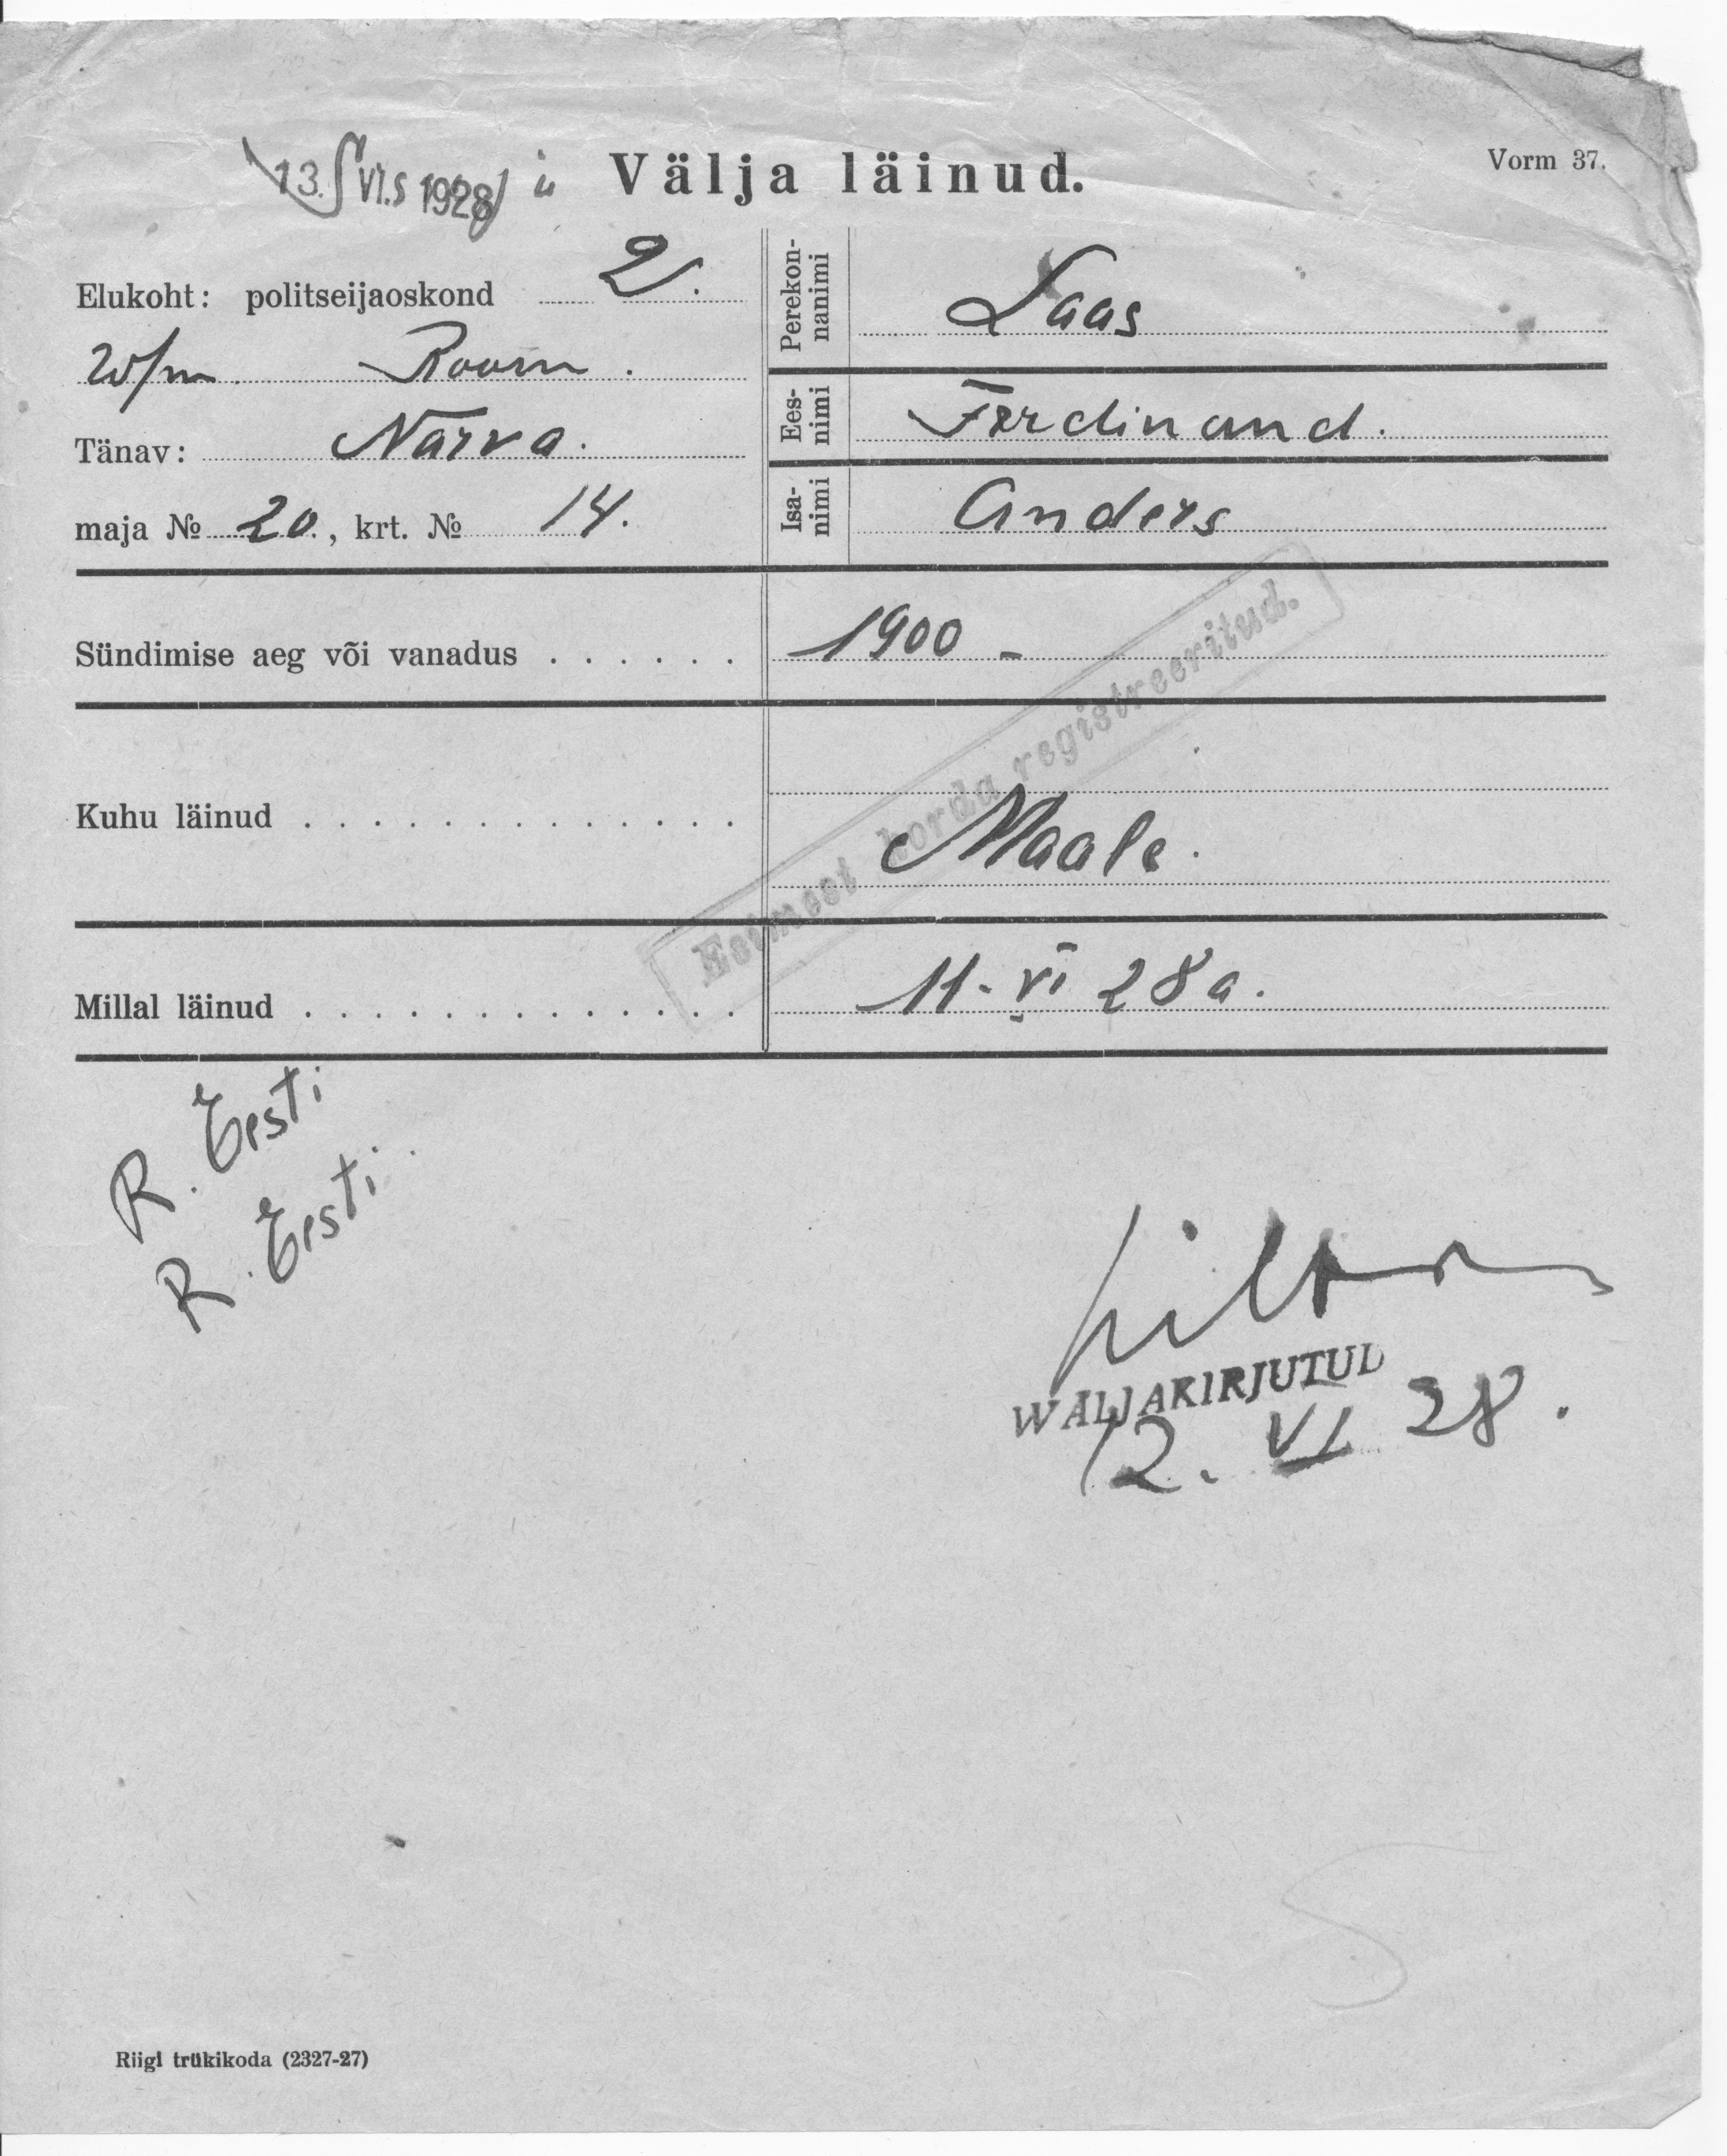 13. VI.s 1928
Välja läinud.
Vorm 37.
Elukoht: politseijaoskond 2.
w/m. Room.
Tänav: Narva.
maja № 20., krt. № 14.
Perekon-
nanimi
Laas
Ees-
nimi
Ferdinand.
Isa-
nimi
Anders
Sündimise aeg või vanadus . . . . . . 1900 -
Kuhu läinud . . . . . . . . . . . . . Maale.
Esimest korda registreeritud.
Millal läinud . . . . . . . . . . . . . 11. VI 28 a.
R. Eesti
R. Eesti.
WÄLJAKIRJUTUD
12. VI 28.
Riigi trükikoda (2327-27)